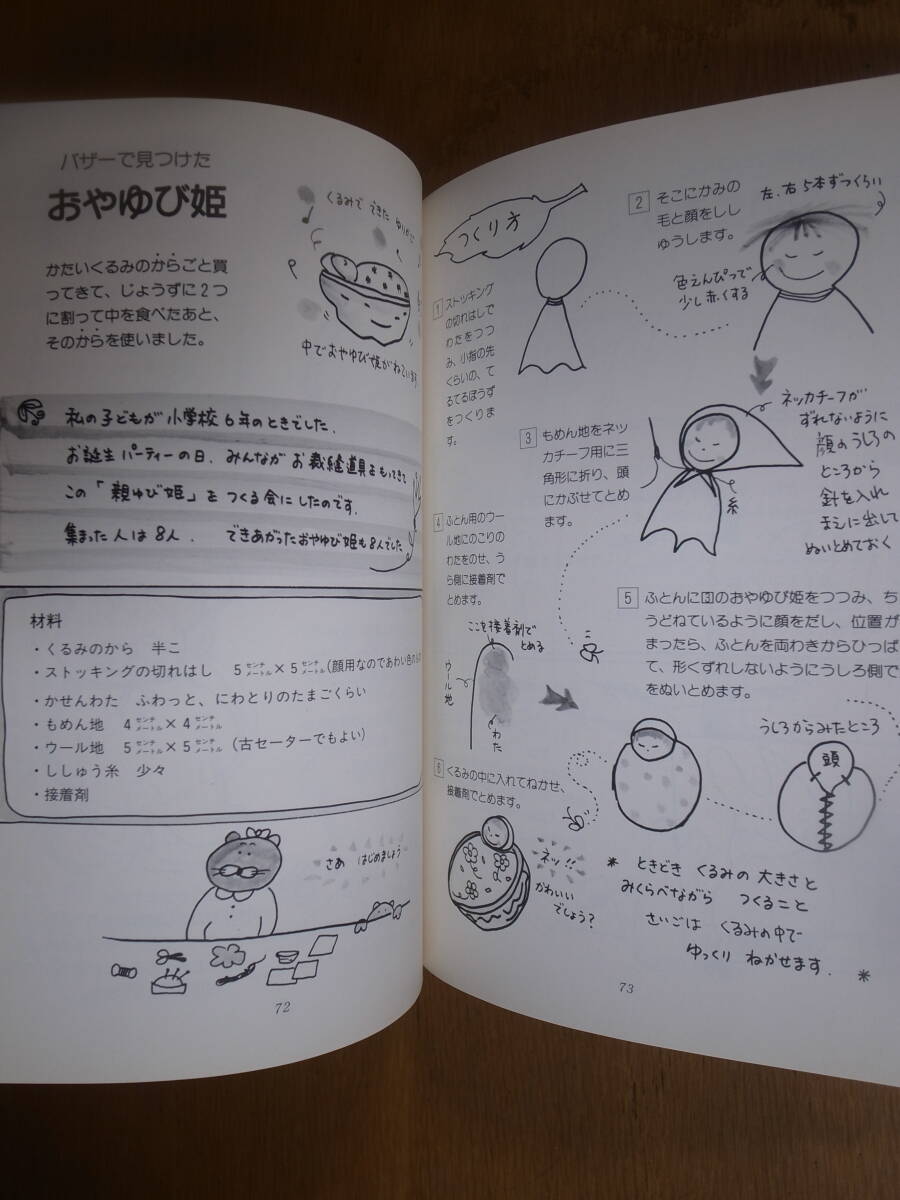 バザーで見つけた
おやゆび姫
くるみで できた ゆりかご
かたいくるみのからごと買
ってきて、じょうずに2つ
に割って中を食べたあと、
そのからを使いました。
中でおやゆび姫がねています
私の子どもが小学校6年のときでした.
お誕生パーティーの日、みんながお裁縫道具をもってきて
この「親ゆび姫」をつくる会にしたのです.
集まった人は8人. できあがったおやゆび姫も8人でした
材料
・くるみのから 半こ
・ストッキングの切れはし 5センチメートル×5センチメートル(顔用なのであわい色の
・かせんわた ふわっと、にわとりのたまごくらい
・もめん地 4センチメートル×4センチメートル
・ウール地 5センチメートル×5センチメートル (古セーターでもよい)
・ししゅう糸 少々
・接着剤
さあ はじめましょう
72
つくり方
1 ストッキング
の切れはしで
わたをつつ
み、小指の先
くらいの、て
るてるぼうず
をつくりま
す。
2 そこにかみの
毛と顔をしし
ゅうします。
左、右5本ずつくらい
色えんぴつで
少し赤くする
3 もめん地をネッ
カチーフ用に三
角形に折り、頭
にかぶせてとめ
ます。
ネッカチーフが
ずれないように
顔のうしろの
ところから
針を入れ
まえに出して
ぬいとめておく
糸
4 ふとん用のウー
ル地にのこりの
わたをのせ、う
ら側に接着剤で
とめます。
ここを接着剤で
とめる
ウール地
わた
5 ふとんに3のおやゆび姫をつつみ、ち
うどねているように顔をだし、位置が
まったら、ふとんを両わきからひっぱ
て、形くずれしないようにうしろ側で
をぬいとめます。
うしろからみたところ
頭
6 くるみの中に入れてねかせ、
接着剤でとめます。
ネッ!!
かわいい
でしょう?
* ときどき くるみの大きさと
みくらべながら つくること
さいごは くるみの中で
ゆっくり ねかせます. *
73